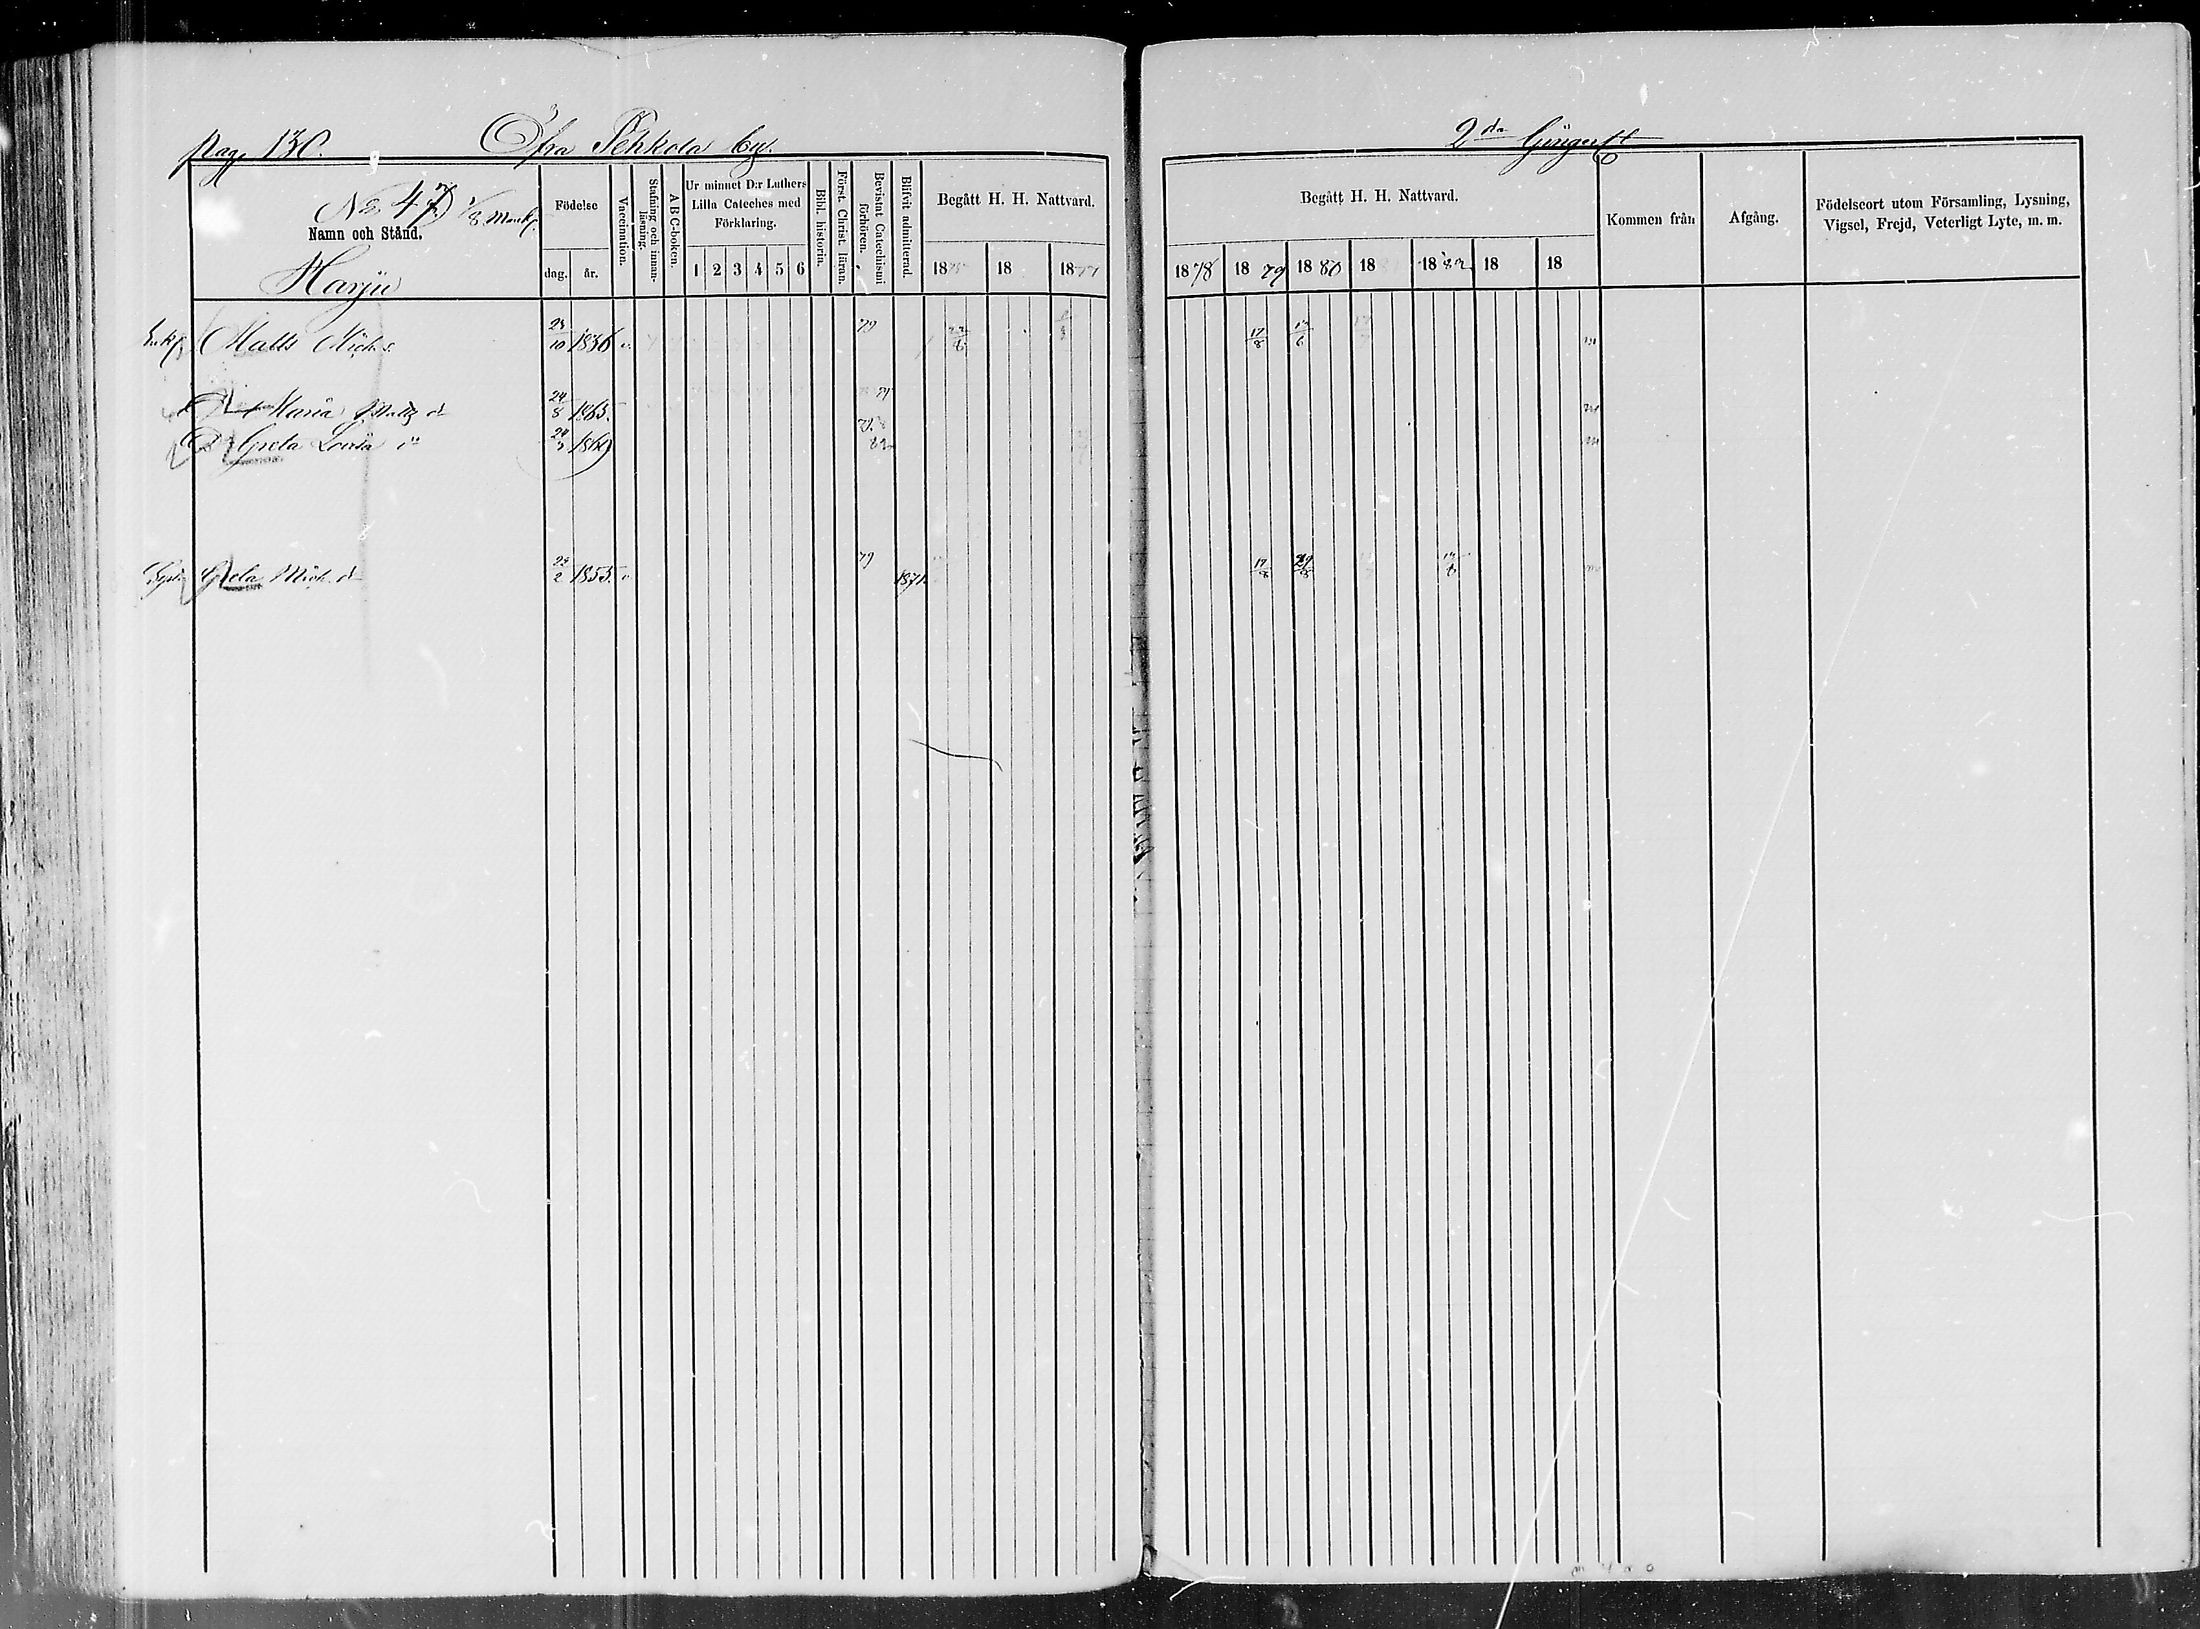 Pag. 130. Öfra Pekkola by.
2da
No 47 1/8 Mant.
Namn och Stånd.
Harju
Födelse
dag. år.
Vaccination.
Stafning och innanläsning.
A B C-boken.
Ur minnet D:r Luthers Lilla Cateches med Förklaring.
1 2 3 4 5 6
Bibl. historia.
Först. Christ. läran.
Bevistat Catechismi förhören.
Blifvit admitterad.
Begått H. H. Nattvard.
18 18 1877
Begått H. H. Nattvard.
1878 1879 1880 18 1882 18 18
Kommen från
Afgång.
Födelseort utom Församling, Lysning, Vigsel, Frejd, Veterligt Lyte, m. m.
Enkl. Matts Mich. s. 23/10 1836 v. 79 17/8 m
D. Maria Matts d. 24/8 1865. m
D. Greta Lovisa d:o 24/3 1869 m
Greta Mich. d. 25/2 1855. v. 79 1871. 17/8 29/8 m